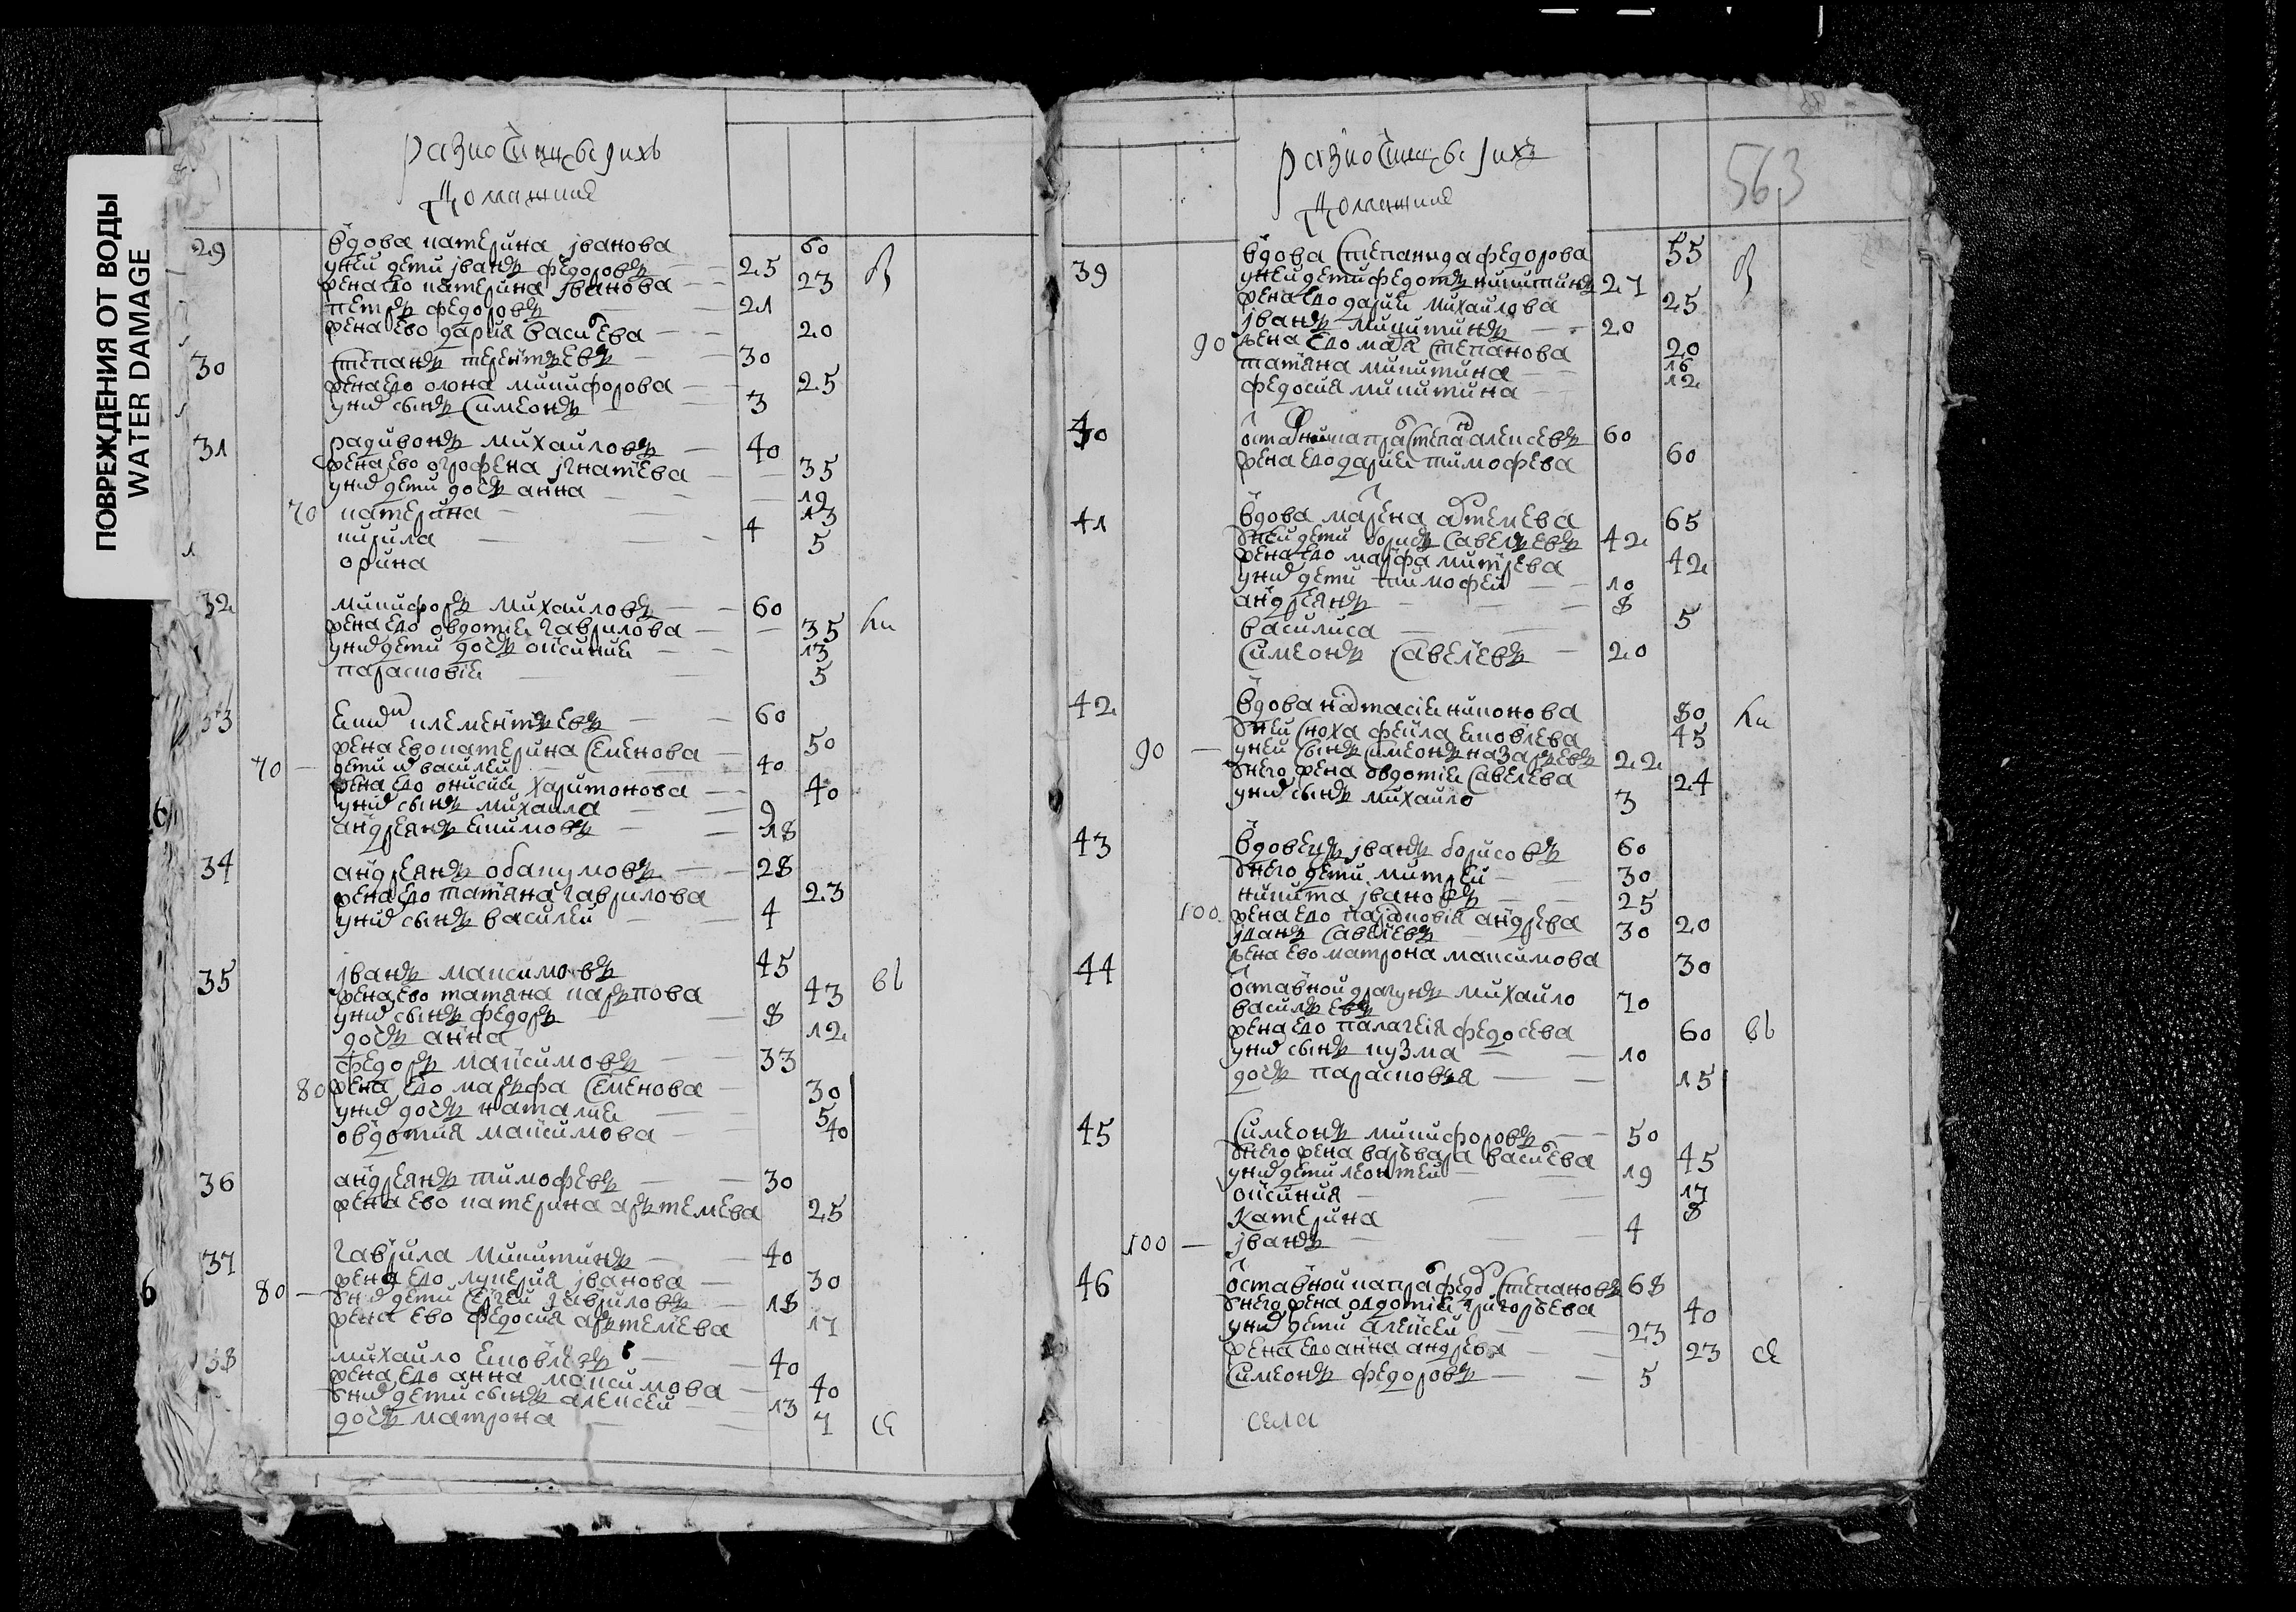 ПОВРЕЖДЕНИЯ ОТ ВОДЫ
WATER DAMAGE
домашние
29 вдова катерина iванова 60
у неи дети iванъ федоровъ 25
жена ево катерина iванова 23
петръ федоровъ 21
жена ево дария василева 20
30 степанъ терентъевъ 30
жена ево олона микифорова 25
у них сынъ симеонъ 3
31 радивонъ михаиловъ 40
жена ево огрофена iгнатева 35
у них дети дочъ анна 19
70 катерина 13
кирила 4
орина 5
32 микифоръ михаиловъ 60
жена ево овдотия гаврилова 35
у них дети дочъ оксиния 13
парасковия 5
33 климентъевъ 60
жена ево катерина семенова 50
70 дети василеи 40
жена ево онисия харитонова 40
у них сынъ михаила 9
андреянъ 18
34 андреянъ обакумовъ 28
жена ево татяна гаврилова 23
у них сынъ василеи 4
35 iванъ максимовъ 45
жена ево татяна карпова 43
у них сынъ федоръ 8
дочъ анна 12
федоръ максимовъ 33
80 жена ево маръфа семенова 30
у них дочъ наталия 5
овдотия максимова 40
36 андреянъ тимофевъ 30
жена ево катерина арътемева 25
37 гаврила микитинъ 40
жена ево лукерия iванова 30
80 у них дети сергеи гавриловъ 18
жена ево федосия арътемева 17
38 михаило 40
жена ево анна максимова 40
у них дети сынъ алексеи 13
дочъ матрона 7
563
домашние
39 вдова степанида федорова 55
у неи дети федотъ никитинъ 27
жена ево дария михаилова 25
iванъ микитинъ 20
90 жена ево степанова 20
татяна микитина 16
федосия микитина 12
40 алексеевъ 60
жена ево дария тимофева 60
41 вдова марена артемева 65
у неи дети борисъ савелъевъ 42
жена ево марфа митрева 42
у них дети тимофеи 10
андреянъ 8
василиса 5
симеонъ савелевъ 20
42 вдова настасия никонова 80
у неи сноха фекла 45
90 у неи сынъ симеонъ назаръевъ 22
у него жена овдотия савелева 24
у них сынъ михаило 3
43 вдовецъ iванъ борисовъ 60
у него дети митреи 30
никита iвановъ 25
100 жена ево парасковия андрева 20
iванъ савелевъ 30
жена ево матрона максимова 30
44 оставнои драгунъ михаило
василъевъ 70
жена ево палагея федосева 60
у них сынъ кузма 10
дочъ парасковъя 15
45 симеонъ микифоровъ 50
у него жена варъвара василева 45
у них дети леонтеи 19
оксиния 17
катерина 8
100 iванъ 4
46 оставнои степановъ 68
у него жена овдотия григоръева 40
у них дети алексеи 23
жена ево анна андрева 23
симеонъ федоровъ 5
села